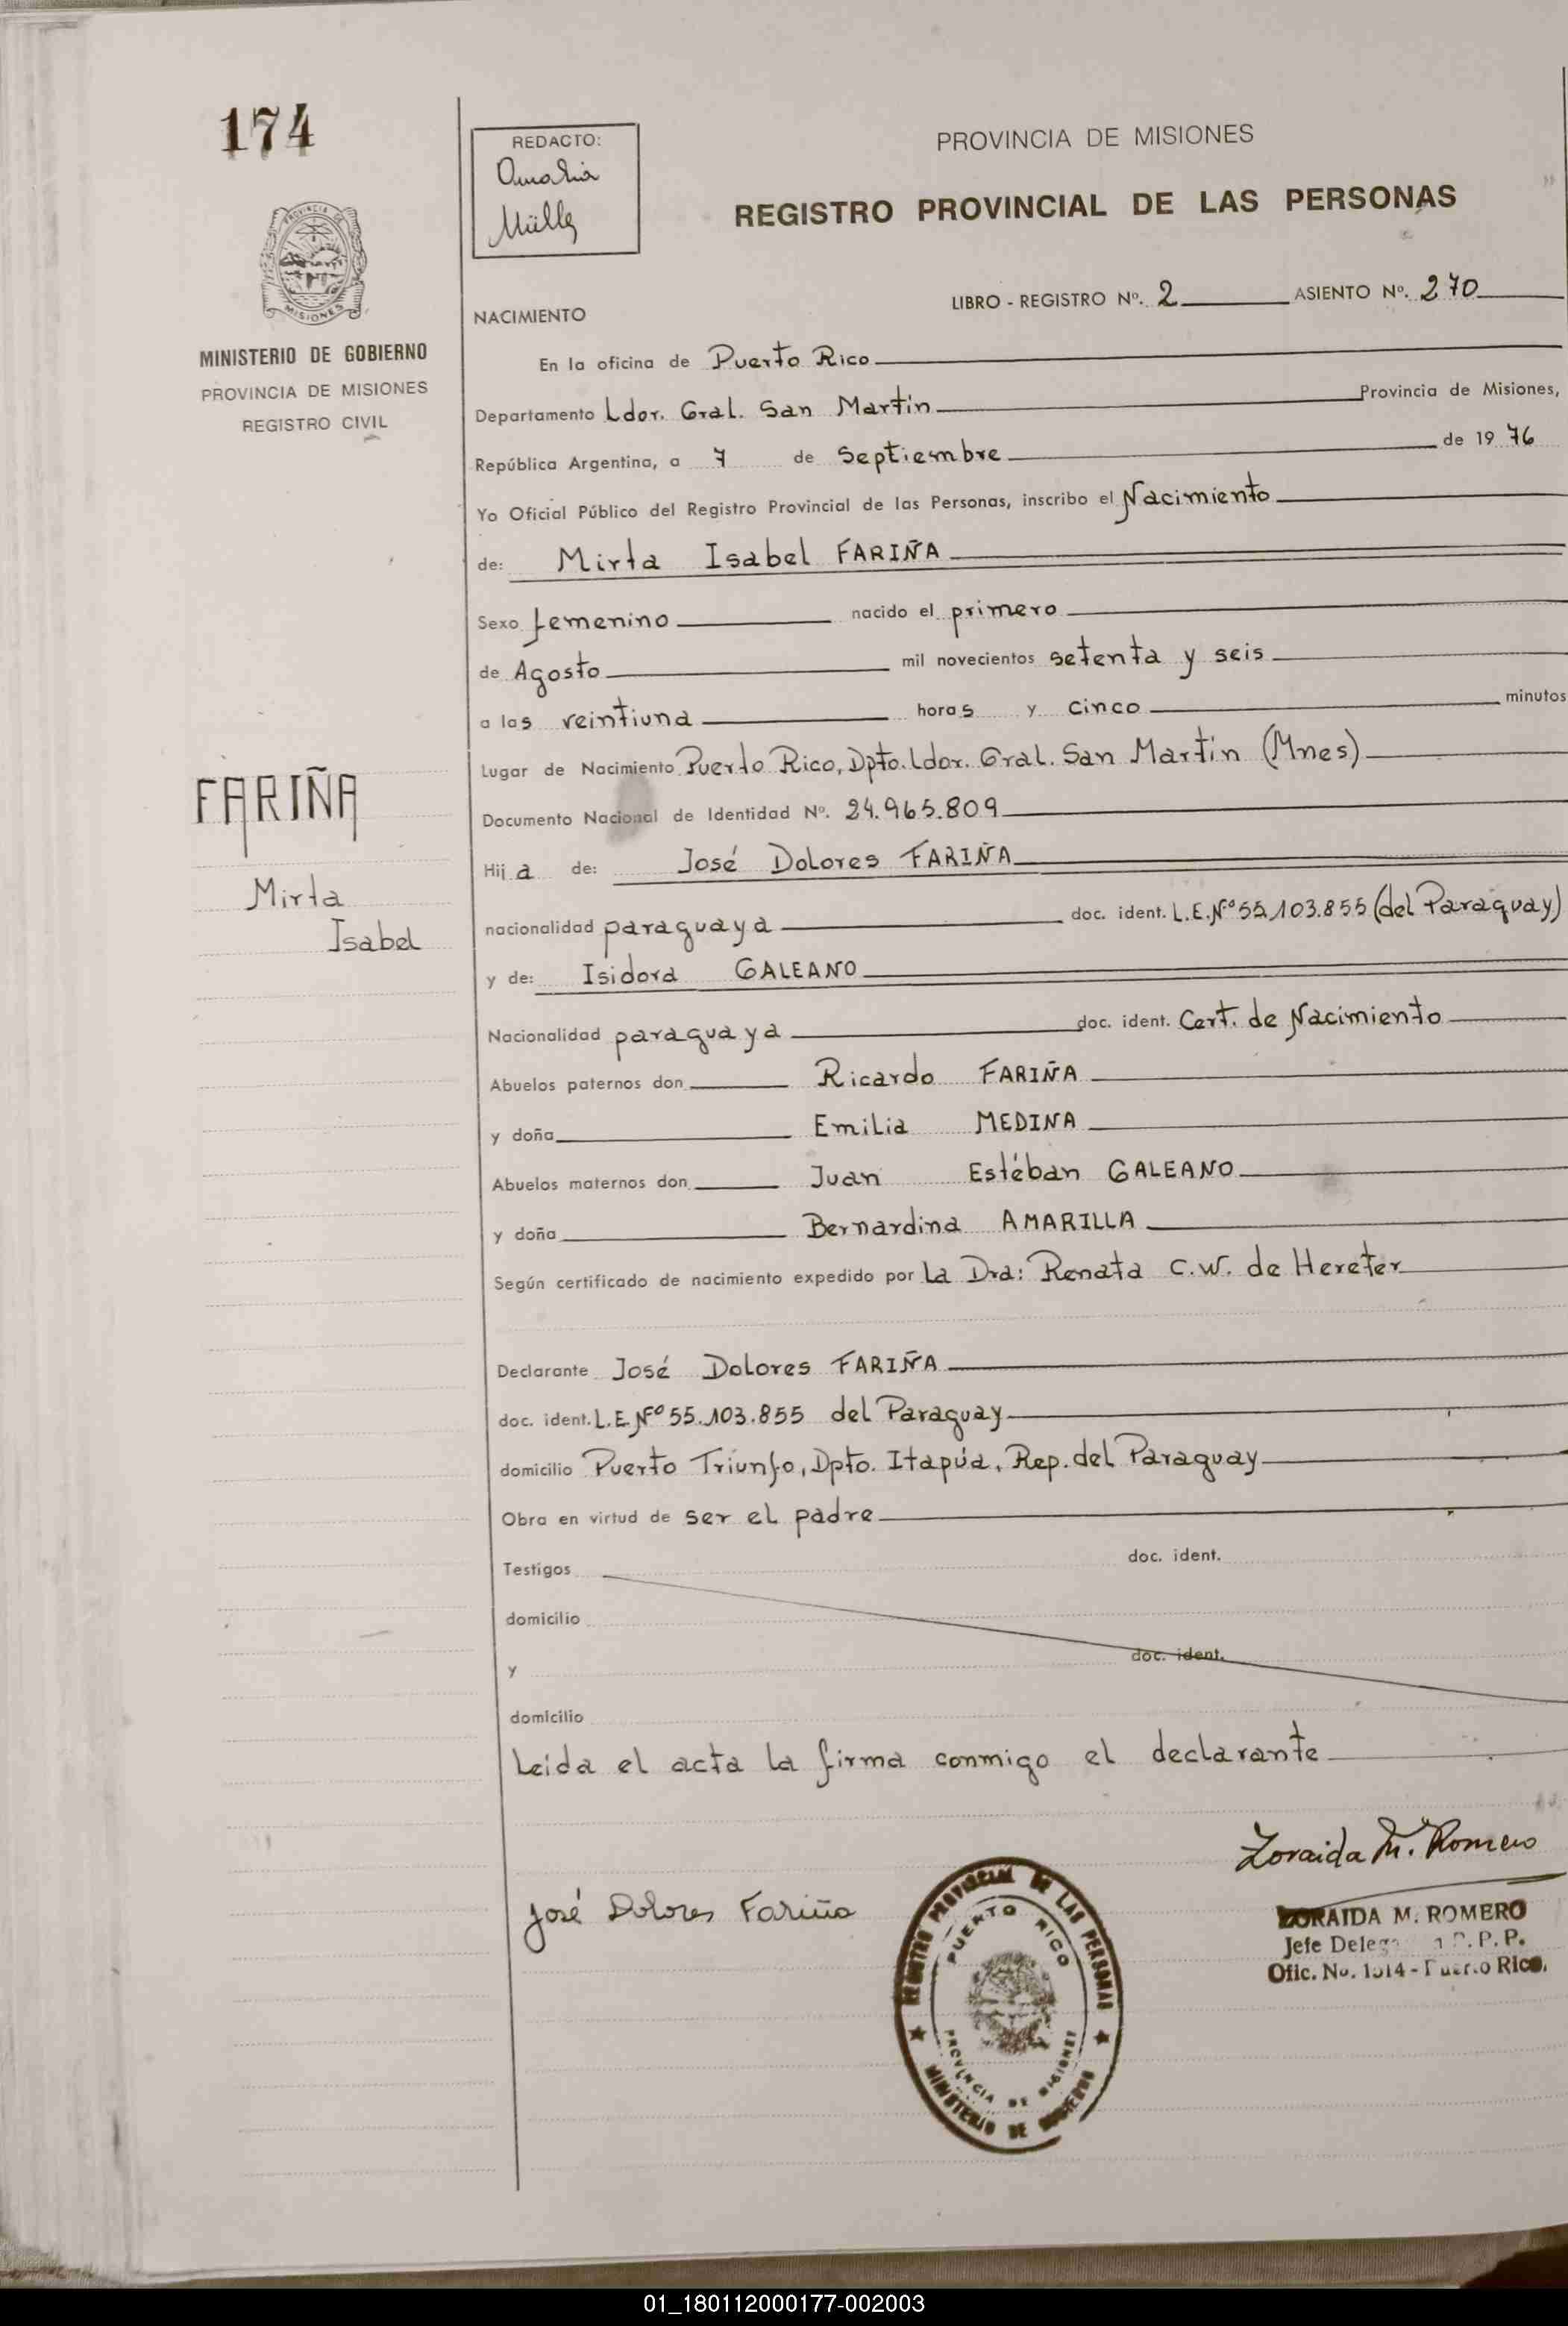 174
REDACTO:
Amalia
Müller
PROVINCIA DE MISIONES
REGISTRO PROVINCIAL DE LAS PERSONAS
LIBRO - REGISTRO Nº. 2 ASIENTO Nº. 270
MISIONES
MINISTERIO DE GOBIERNO
PROVINCIA DE MISIONES
REGISTRO CIVIL
NACIMIENTO
En la oficina de Puerto Rico
Departamento Ldor. Gral. San Martín Provincia de Misiones,
República Argentina, a 7 de Septiembre de 1976
Yo Oficial Público del Registro Provincial de las Personas, inscribo el Nacimiento
de: Mirta Isabel FARIÑA
Sexo femenino nacido el primero
de Agosto mil novecientos setenta y seis
a las veintiuna horas y cinco minutos
Lugar de Nacimiento Puerto Rico, Dpto. Ldor. Gral. San Martín (Mnes)
Documento Nacional de Identidad Nº. 24.965.809
FARIÑA
Mirta
Isabel
Hija de: José Dolores FARIÑA
nacionalidad paraguaya doc. ident. L.E.Nº 55.103.855 (del Paraguay)
y de: Isidora GALEANO
Nacionalidad paraguaya doc. ident. Cert. de Nacimiento
Abuelos paternos don Ricardo FARIÑA
y doña Emilia MEDINA
Abuelos maternos don Juan Estéban GALEANO
y doña Bernardina AMARILLA
Según certificado de nacimiento expedido por La Dra: Renata C.W. de Hereter
Declarante José Dolores FARIÑA
doc. ident. L.E.Nº 55.103.855 del Paraguay
domicilio Puerto Triunfo, Dpto. Itapúa, Rep. del Paraguay
Obra en virtud de ser el padre
Testigos doc. ident.
domicilio
y doc. ident.
domicilio
Leida el acta la firma conmigo el declarante
José Dolores Fariña
Zoraida M. Romero
REGISTRO PROVINCIAL DE LAS PERSONAS
PUERTO RICO
PROVINCIA DE MISIONES
MINISTERIO DE GOBIERNO
ZORAIDA M. ROMERO
Jefe R.P.P.
Ofic. No. 1014 - Puerto Rico.
01_180112000177-002003